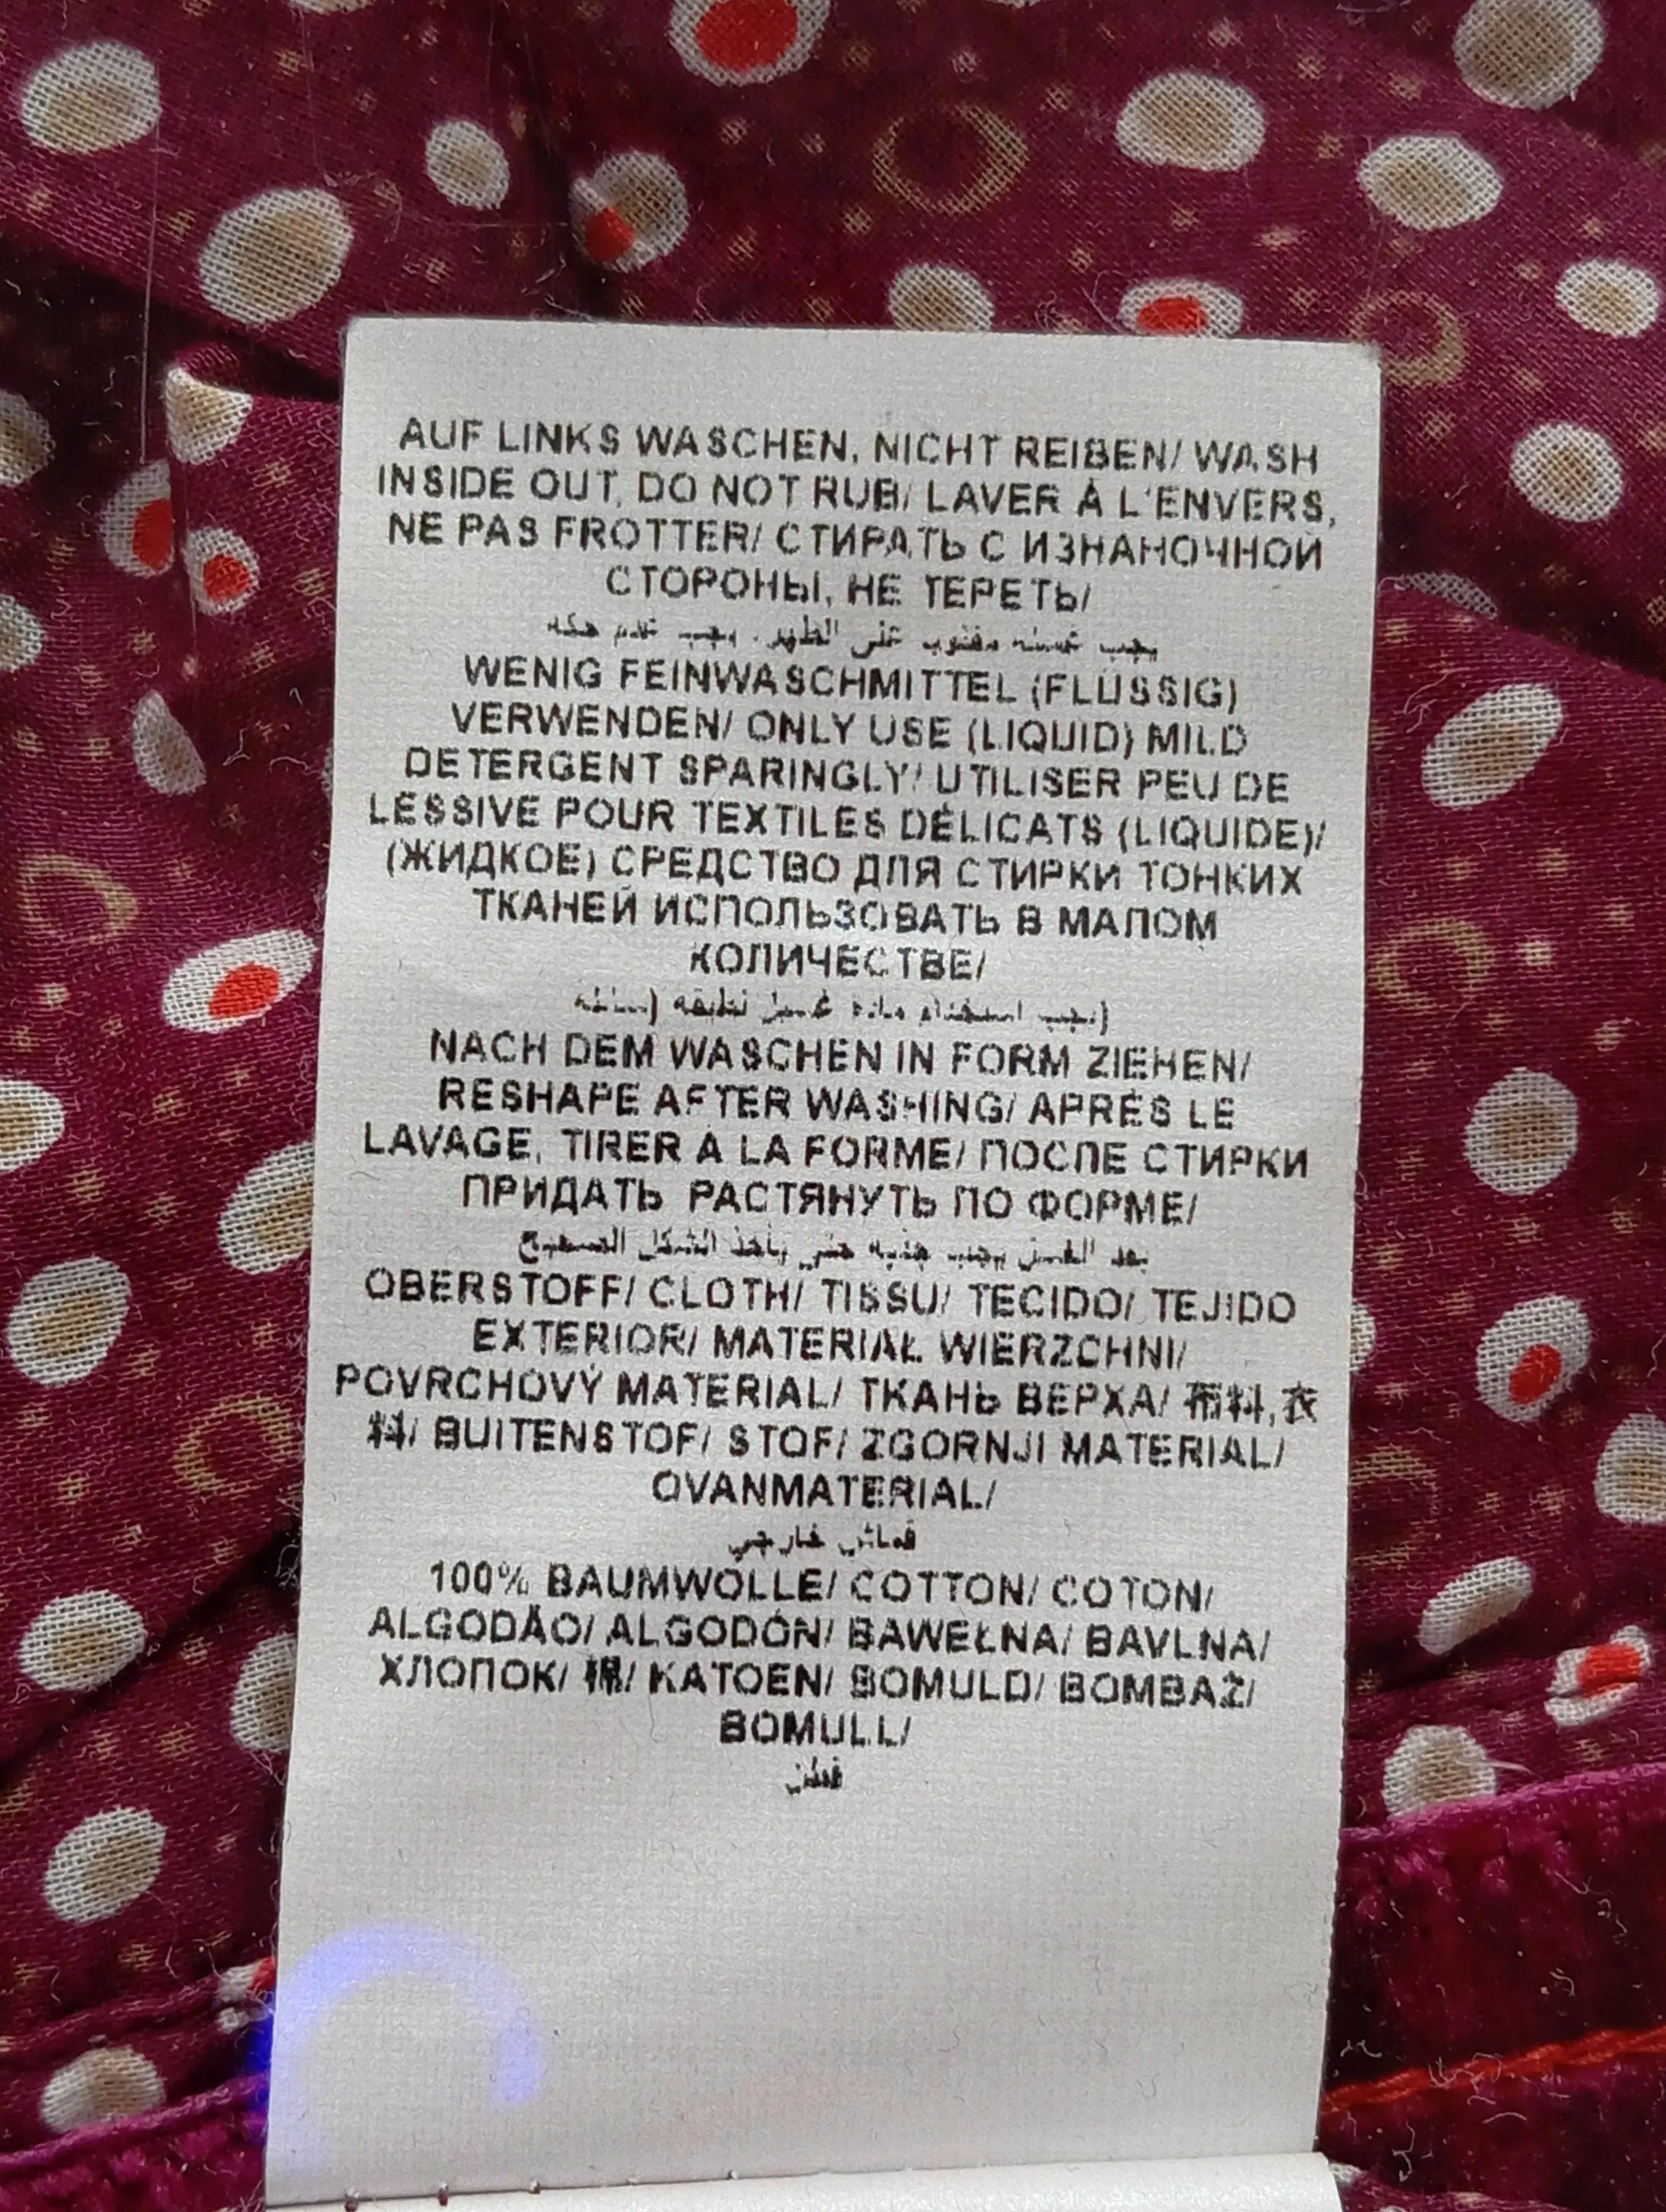 AUF LINKS WASCHEN, NICHT REIBEN/ WASH
INSIDE OUT, DO NOT RUB/ LAVER À L'ENVERS,
NE PAS FROTTER/ СТИРАТЬ С ИЗНАНОЧНОЙ
СТОРОНЫ, НЕ ТЕРЕТЬ/
يجب غسله مقلوب على الظهر. ويجب عدم حكه
WENIG FEINWASCHMITTEL (FLÜSSIG)
VERWENDEN/ ONLY USE (LIQUID) MILD
DETERGENT SPARINGLY/ UTILISER PEU DE
LESSIVE POUR TEXTILES DÉLICATS (LIQUIDE)/
(ЖИДКОЕ) СРЕДСТВО ДЛЯ СТИРКИ ТОНКИХ
ТКАНЕЙ ИСПОЛЬЗОВАТЬ В МАЛОМ
КОЛИЧЕСТВЕ/
(يجب استخدام مادة غسيل لطيفة (سائلة
NACH DEM WASCHEN IN FORM ZIEHEN/
RESHAPE AFTER WASHING/ APRÈS LE
LAVAGE, TIRER À LA FORME/ ПОСЛЕ СТИРКИ
ПРИДАТЬ РАСТЯНУТЬ ПО ФОРМЕ/
بعد الغسل يجب جذبه حتى يأخذ الشكل الصحيح
OBERSTOFF/ CLOTH/ TISSU/ TECIDO/ TEJIDO
EXTERIOR/ MATERIAŁ WIERZCHNI/
POVRCHOVÝ MATERIAL/ ТКАНЬ ВЕРХА/ 布料,衣
料/ BUITENSTOF/ STOF/ ZGORNJI MATERIAL/
OVANMATERIAL/
قماش خارجي
100% BAUMWOLLE/ COTTON/ COTON/
ALGODÃO/ ALGODÓN/ BAWEŁNA/ BAVLNA/
ХЛОПОК/ 棉/ KATOEN/ BOMULD/ BOMBAŽ/
BOMULL/
قطن